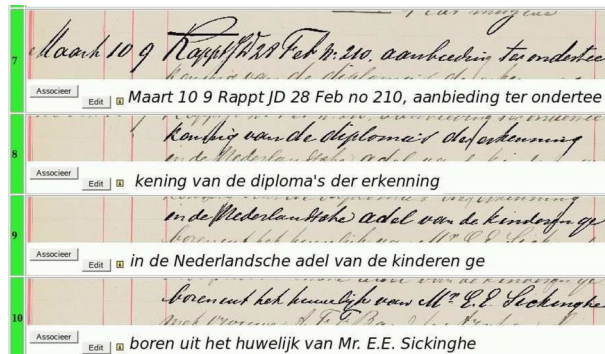 7
Maart 10 9 Rappt JD 28 Feb No. 210. aanbieding ter ondertee
Associeer Edit Maart 10 9 Rappt JD 28 Feb no 210, aanbieding ter ondertee
8
kening van de diploma's der erkenning
Associeer Edit kening van de diploma's der erkenning
9
in de Nederlandsche adel van de kinderen ge
Associeer Edit in de Nederlandsche adel van de kinderen ge
10
boren uit het huwelijk van Mr. E.E. Sickinghe
Associeer Edit boren uit het huwelijk van Mr. E.E. Sickinghe